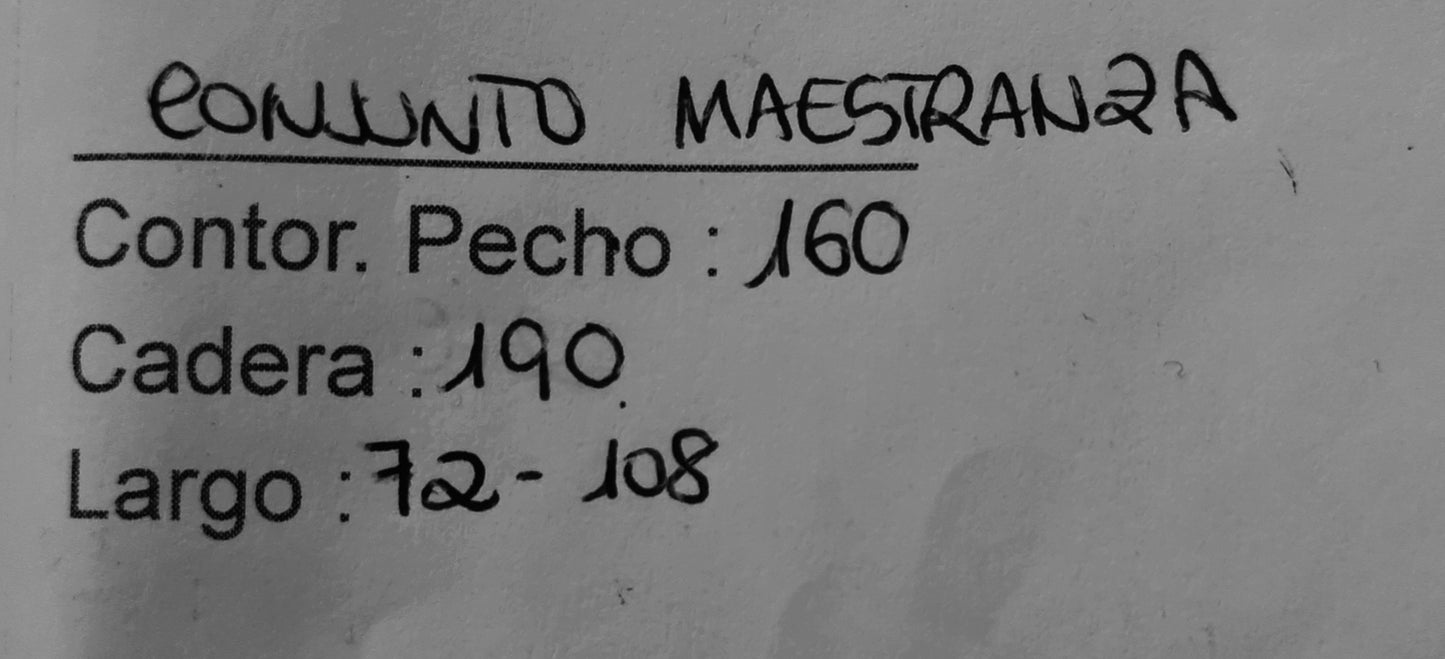 CONJUNTO MAESTRANZA
Contor. Pecho : 160
Cadera : 190.
Largo : 72 - 108